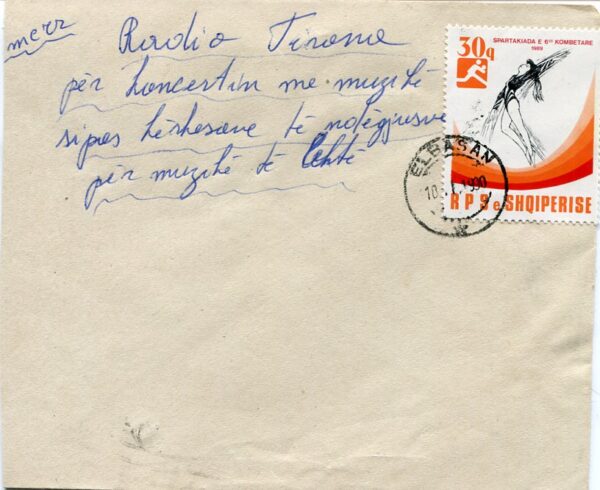 merr
Radio Tirana
për koncertin me muzikë
sipas kërkesave të ndëgjusve
për muzikë të lehtë
SPARTAKIADA E 6të KOMBETARE
1989
30q
ELBASAN
1990
R P S e SHQIPERISE